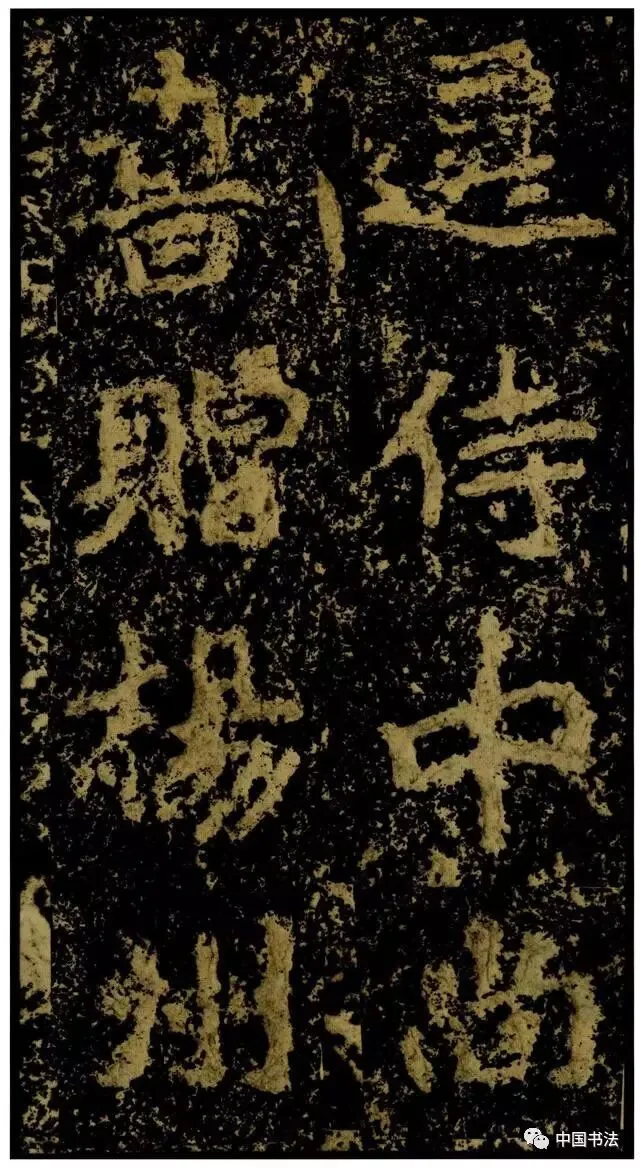 侍中尚
書贈楊州
中国书法